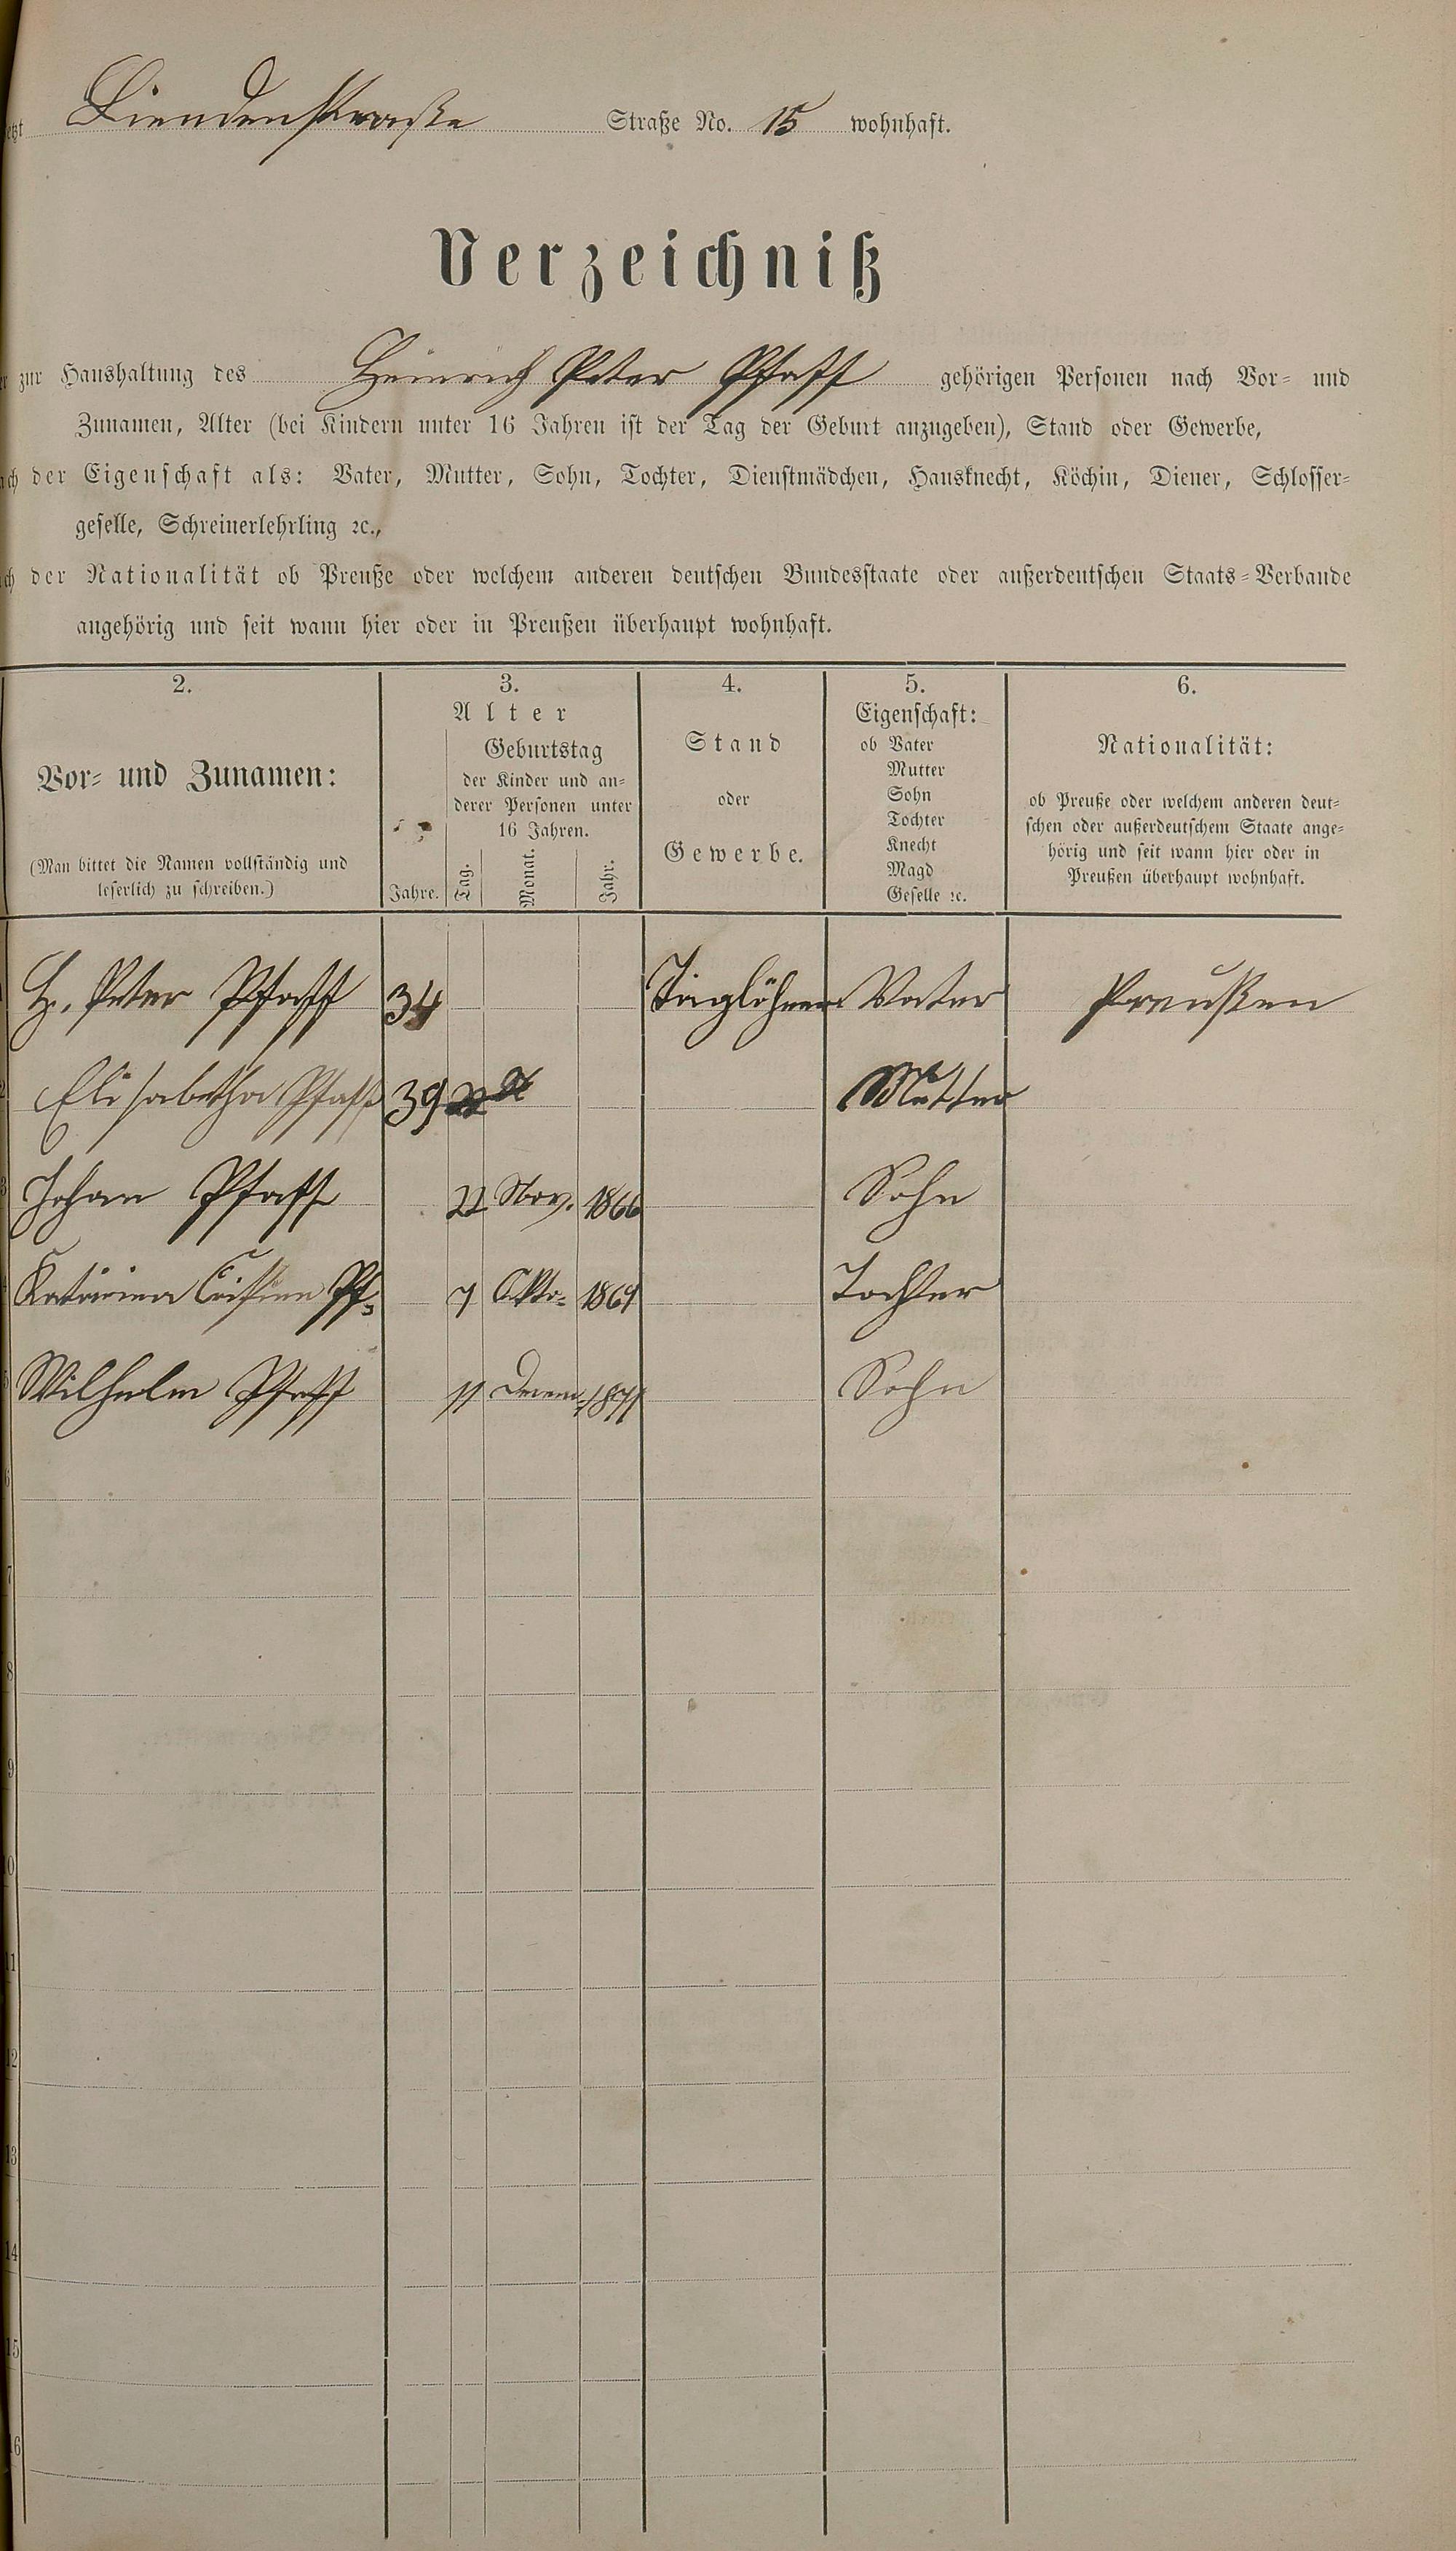 jetzt Liendenstraße Straße No. 15 wohnhaft.
Verzeichniß
zur Haushaltung des Heinrich Peter Pfaff gehörigen Personen nach Vor- und
Zunamen, Alter (bei Kindern unter 16 Jahren ist der Tag der Geburt anzugeben), Stand oder Gewerbe,
der Eigenschaft als: Vater, Mutter, Sohn, Tochter, Dienstmädchen, Hausknecht, Köchin, Diener, Schlosser-
geselle, Schreinerlehrling ꝛc.,
der Nationalität ob Preuße oder welchem anderen deutschen Bundesstaate oder außerdeutschen Staats-Verbande
angehörig und seit wann hier oder in Preußen überhaupt wohnhaft.
2.
Vor- und Zunamen:
(Man bittet die Namen vollständig und
leserlich zu schreiben.)
3.
Alter
Jahre.
Geburtstag
der Kinder und an-
derer Personen unter
16 Jahren.
Tag.
Monat.
Jahr.
4.
Stand
oder
Gewerbe.
5.
Eigenschaft:
ob Vater
Mutter
Sohn
Tochter
Knecht
Magd
Geselle ꝛc.
6.
Nationalität:
ob Preuße oder welchem anderen deut-
schen oder außerdeutschem Staate ange-
hörig und seit wann hier oder in
Preußen überhaupt wohnhaft.
H. Peter Pfaff 34 Taglöhner Vater Preußen
2 Elisabetha Pfaff 39 Mutter
3 Johan Pfaff 22 Nov. 1866 Sohn
Katarina Pf- 7 Okto- 1869 Tochter
Wilhelm Pfaff 11 1871 Sohn
6
7
8
9
10
11
12
13
14
15
16